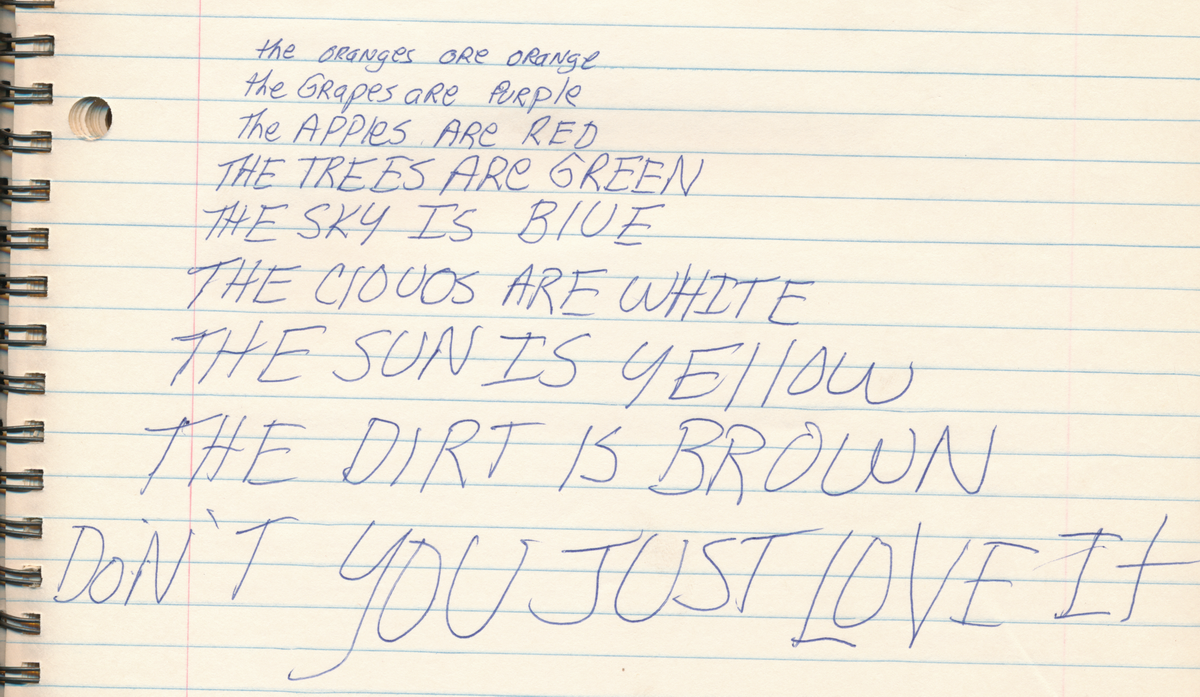 the ORANges ORe ORANge
the GRapes are PURPle
The APPles ARe RED
THE TREES ARe GREEN
THE SKY IS BlUE
THE ClOUDS ARE WHITE
THE SUN IS YEllOW
THE DIRT IS BROWN
DON'T YOU JUST LOVE It